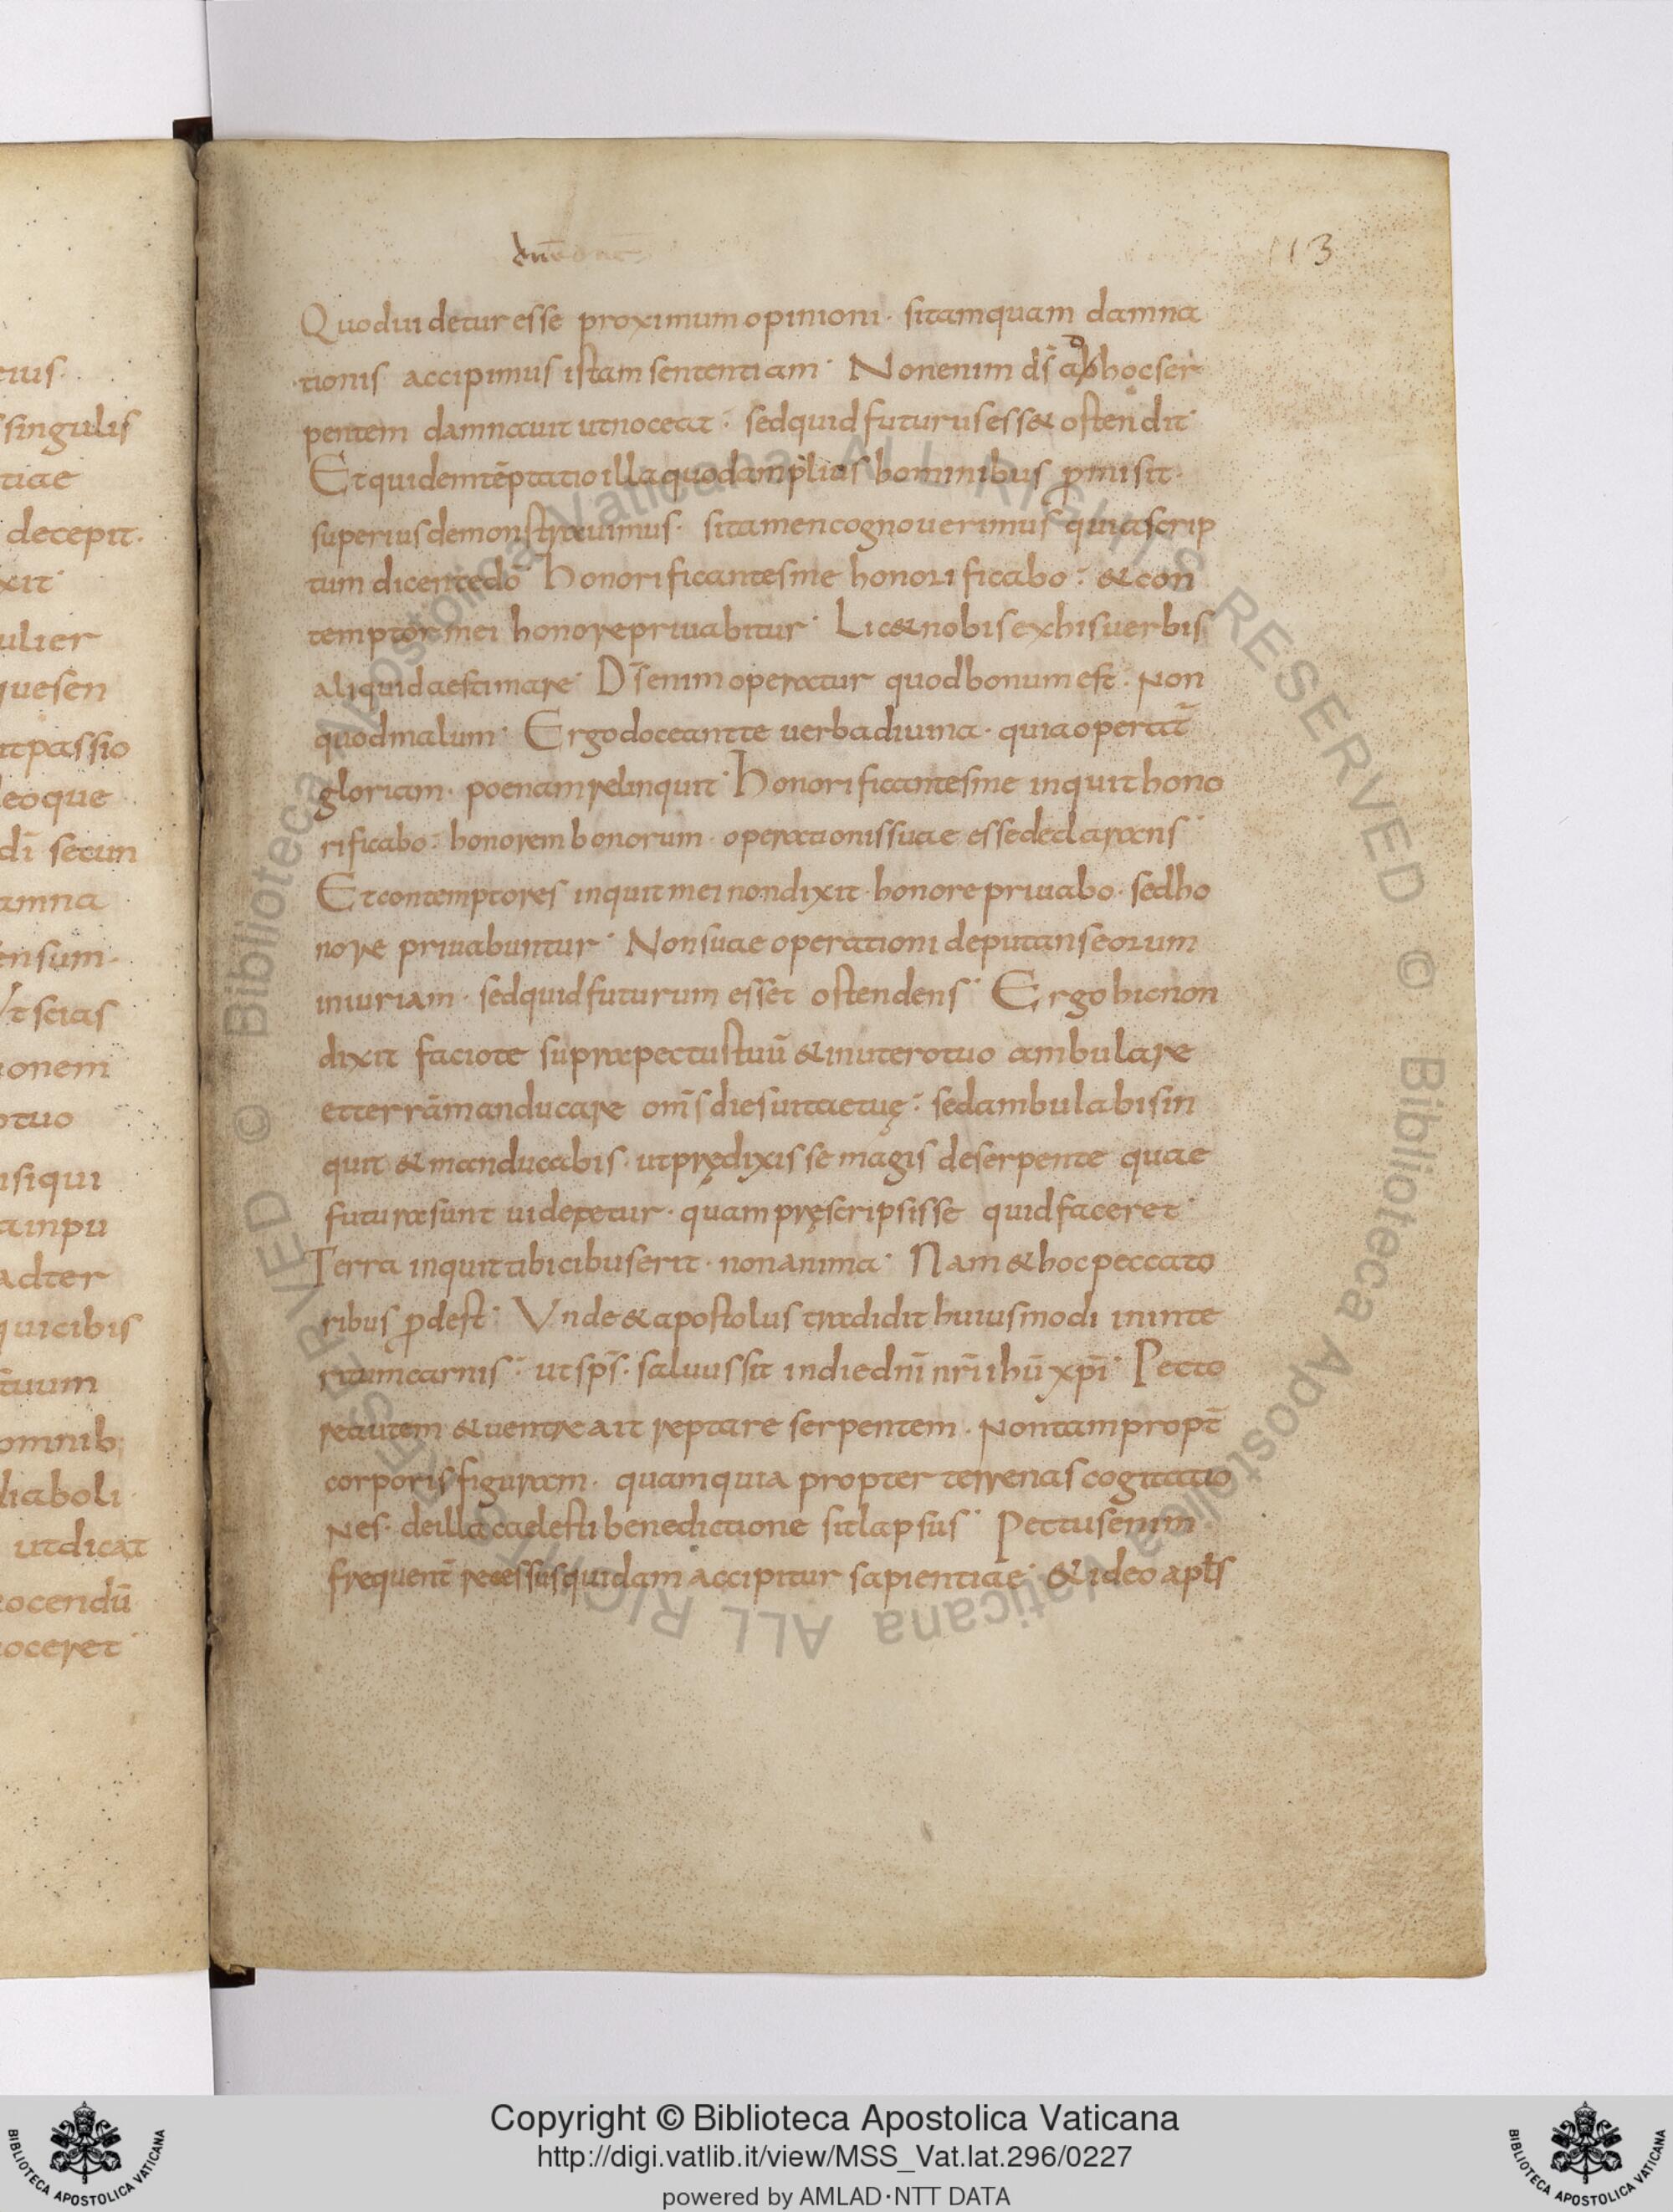 113
Quod uidetur esse proximum opinioni · si tamquam damna
tionis accipimus istam sententiam · Non enim d̄s ad hoc ser
pentem damnauit ut noceat : sed quid futurus ess& ostendit ·
Et quidem tēptatio illa quod amplius hominibus ꝓmisit ·
superius demonstrauimus · si tamen cognouerimus quia scrip
tum dicente dō · honorificantes me honorificabo : & con
temptor mei honore priuabitur · Lic& nobis ex his uerbis
aliquid aestimare · D̄s enim operatur quod bonum est · Non
quod malum · Ergo doceant te uerba diuina · quia operat̄
gloriam · poenam relinquit · honorificantes me inquit hono
rificabo : honorem bonorum · operationis suae esse declarans ·
Et contemptores inquit mei non dixit · honore priuabo · sed ho
nore priuabuntur · Non suae operationi deputans eorum
iniuriam · sed quid futurum esset ostendens · Ergo hic non
dixit facio te supra pectus tuū & in utero tuo ambulare
et terrā manducare om̄s dies uitae tuę : sed ambulabis in
quit & manducabis · ut prędixisse magis de serpente quae
futura sunt uideretur · quam pręscripsisse quid faceret ·
Terra inquit tibi cibus erit · non anima · Nam & hoc peccato
ribus ꝓdest · Vnde & apostolus tradidit huiusmodi in inte
ritum carnis : ut sp̄s · saluus sit in die dn̄i nr̄i ihū xp̄i · Pecto
re autem & uentre ait reptare serpentem · Non tam propt̄
corporis figuram · quam quia propter terrenas cogitatio
Nes · de illa caelesti benedictione sit lapsus · Pectus enim ·
frequent̄ recessus quidam accipitur sapientiae · & ideo aptł̄s
eius ·
singulis
tiae
decepit ·
xit ·
ulier
quesen
it passio
leoque
di secun
amna
ensum ·
Vt scias
onem
o tuo
isi qui
a in pu
ad ter
qui cibis
tuum
omnib;
diaboli
ut dicat
nocendū
noceret ·
Copyright © Biblioteca Apostolica Vaticana
http://digi.vatlib.it/view/MSS_Vat.lat.296/0227
powered by AMLAD·NTT DATA
BIBLIOTECA APOSTOLICA VATICANA
BIBLIOTECA APOSTOLICA VATICANA
© Biblioteca Apostolica Vaticana ALL RIGHTS RESERVED © Biblioteca Apostolica Vaticana ALL RIGHTS RESERVED